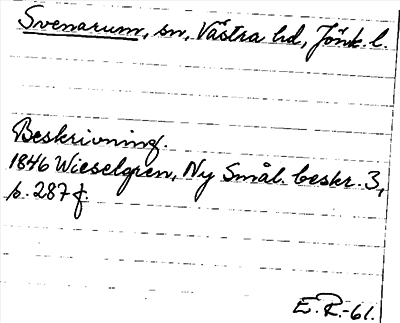 Svenarum, sn, Västra hd, Jönk. l.
Beskrivning.
1846 Wieselgren, Ny Smål. beskr. 3,
s. 287 f.
E. R. -61.